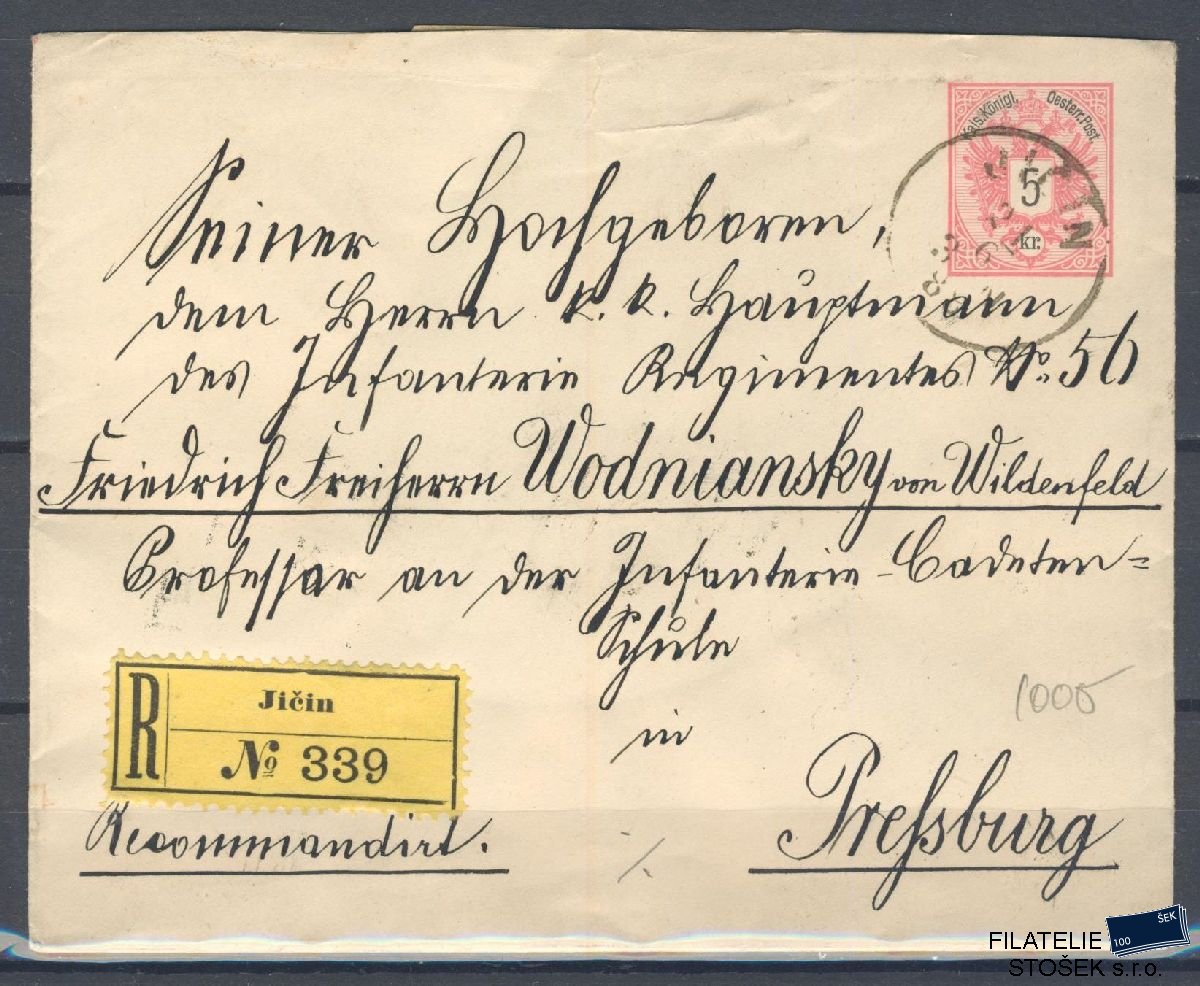 Kais. Königl. Oesterr. Post.
5
kr.
JIČIN
Seiner Hochgeboren,
dem Herrn k. k. Hauptmann
des Infanterie Regimentes No. 56
Friedrich Freiherrn Wodniansky von Wildenfeld
Professor an der Infanterie-Cadeten=
Schule
in
Preſsburg
R
Jičin
No 339
Recommandirt.
1000
FILATELIE
STOŠEK s.r.o.
100
ŠEK